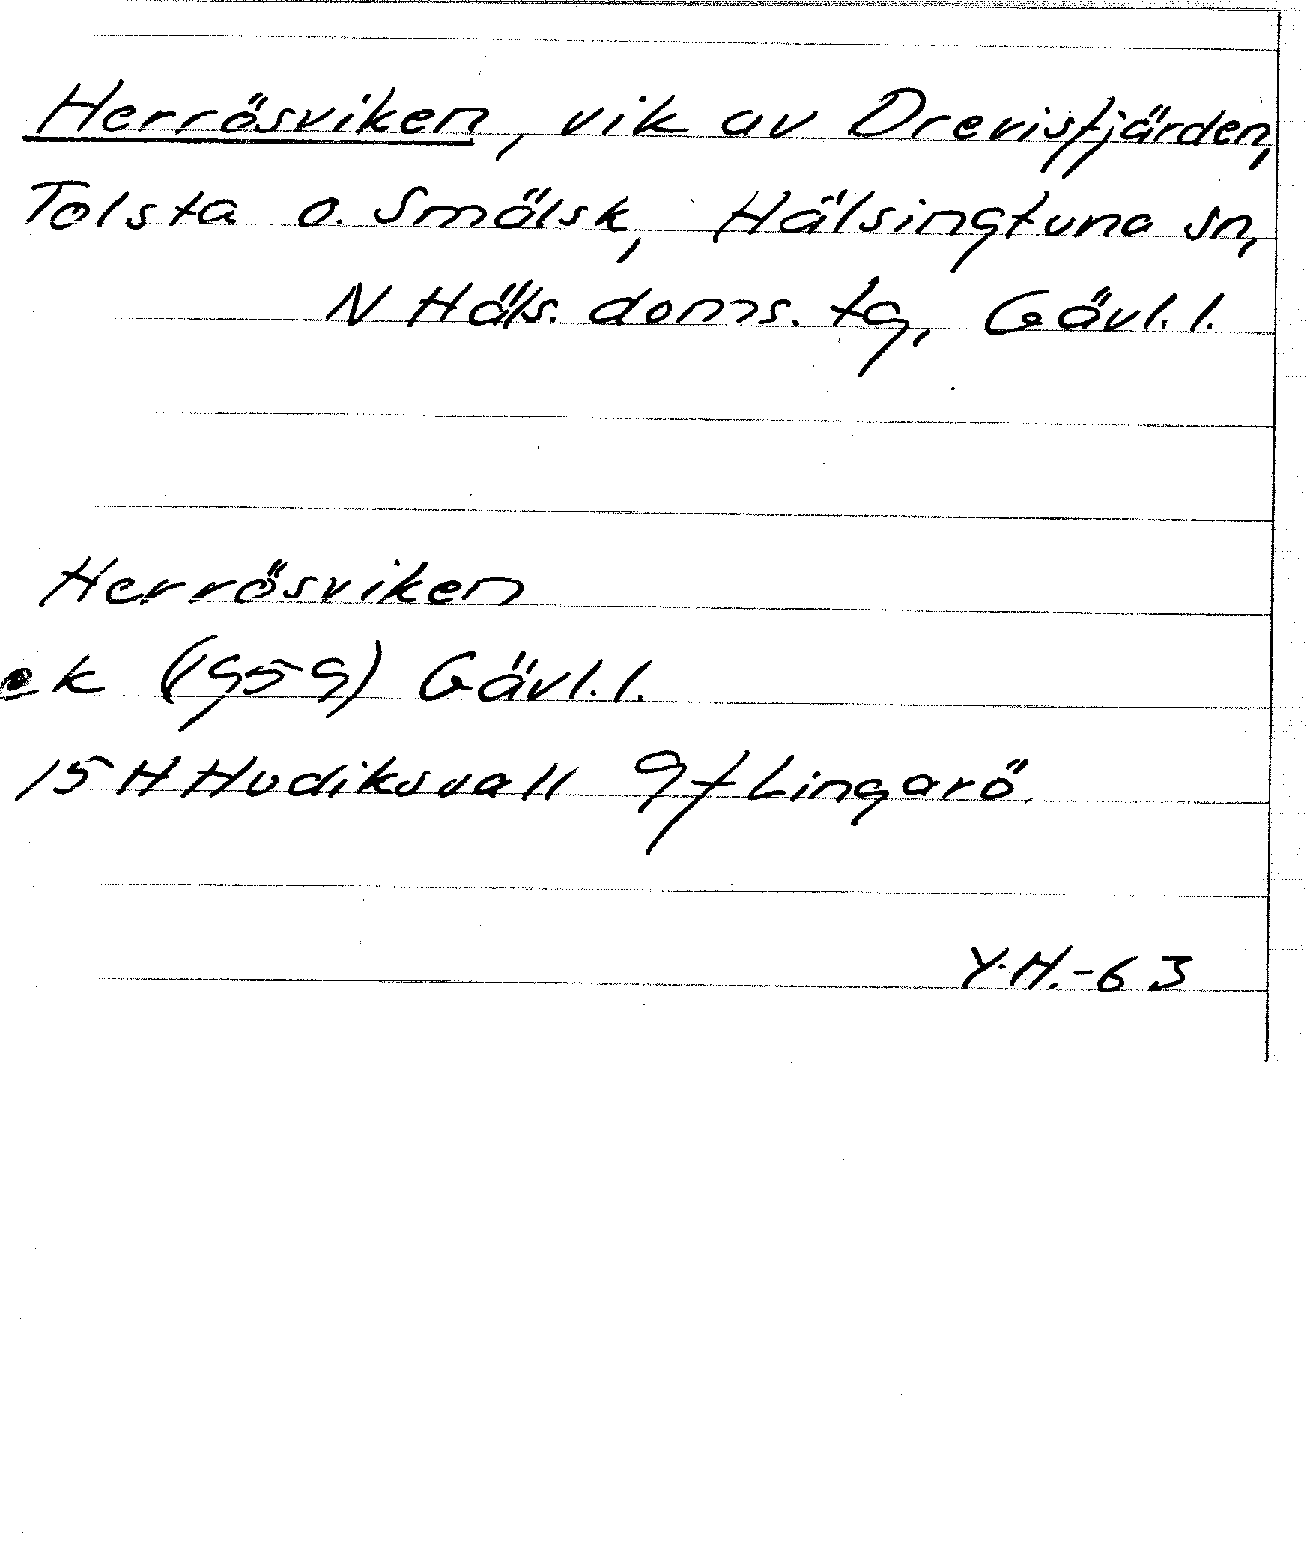 Herrösviken, vik av Drevisfjärden,
Tolsta o. Smälsk, Hälsingtuna sn,
N Häls. doms. tg, Gävl. l.
Herrösviken
ek (1959) Gävl. l.
15 H Hudiksvall 9f Lingarö
Y.H.-63